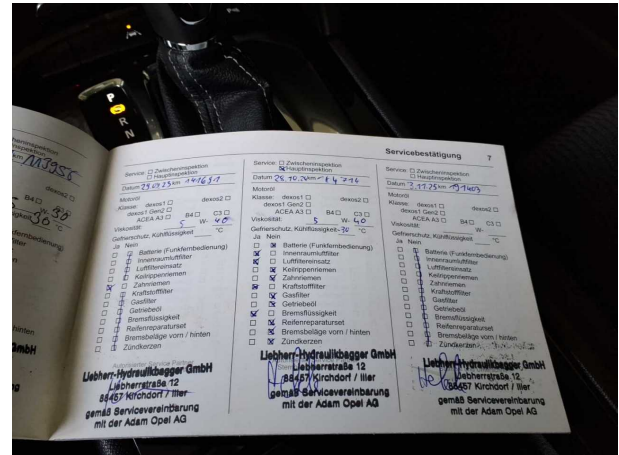 P
R
N
heninspektion
inspektion
km 113956
dexos2
B4
W- 30
-30 °C
fernbedienung)
ilter
hinten
GmbH
Servicebestätigung 7
Service: Zwischeninspektion
Hauptinspektion
km
Motoröl
Klasse: dexos1 dexos2
dexos1 Gen2
ACEA A3 B4 C3
Viskosität: 5 W- 40
Gefrierschutz, Kühlflüssigkeit °C
Ja Nein
Batterie (Funkfernbedienung)
Innenraumluftfilter
Luftfiltereinsatz
Keilrippenriemen
Zahnriemen
Kraftstofffilter
Gasfilter
Getriebeöl
Bremsflüssigkeit
Reifenreparaturset
Bremsbeläge vorn / hinten
Zündkerzen
Autorisierter Service Partner
Liebherr-Hydraulikbagger GmbH
Liebherrstraße 12
88457 Kirchdorf / Iller
gemäß Servicevereinbarung
mit der Adam Opel AG
Service: Zwischeninspektion
Hauptinspektion
Datum 28.10.
Motoröl
Klasse: dexos1 dexos2
dexos1 Gen2
ACEA A3 B4 C3
Viskosität: 5 W- 40
Gefrierschutz, Kühlflüssigkeit -30 °C
Ja Nein
Batterie (Funkfernbedienung)
Innenraumluftfilter
Luftfiltereinsatz
Keilrippenriemen
Zahnriemen
Kraftstofffilter
Gasfilter
Getriebeöl
Bremsflüssigkeit
Reifenreparaturset
Bremsbeläge vorn / hinten
Zündkerzen
Liebherr-Hydraulikbagger GmbH
Liebherrstraße 12
88457 Kirchdorf / Iller
gemäß Servicevereinbarung
mit der Adam Opel AG
Service: Zwischeninspektion
Hauptinspektion
Datum 3.11.25 km
Motoröl
Klasse: dexos1 dexos2
dexos1 Gen2
ACEA A3 B4 C3
Viskosität: W-
Gefrierschutz, Kühlflüssigkeit °C
Ja Nein
Batterie (Funkfernbedienung)
Innenraumluftfilter
Luftfiltereinsatz
Keilrippenriemen
Zahnriemen
Kraftstofffilter
Gasfilter
Getriebeöl
Bremsflüssigkeit
Reifenreparaturset
Bremsbeläge vorn / hinten
Zündkerzen
Liebherr-Hydraulikbagger GmbH
Liebherrstraße 12
88457 Kirchdorf / Iller
gemäß Servicevereinbarung
mit der Adam Opel AG